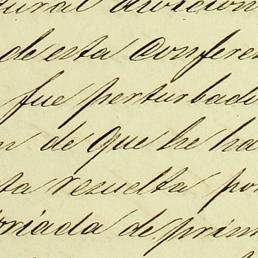 tural
de esta Confere
fue perturbad
n de que he ha
ta resuelta po
oriada de prim